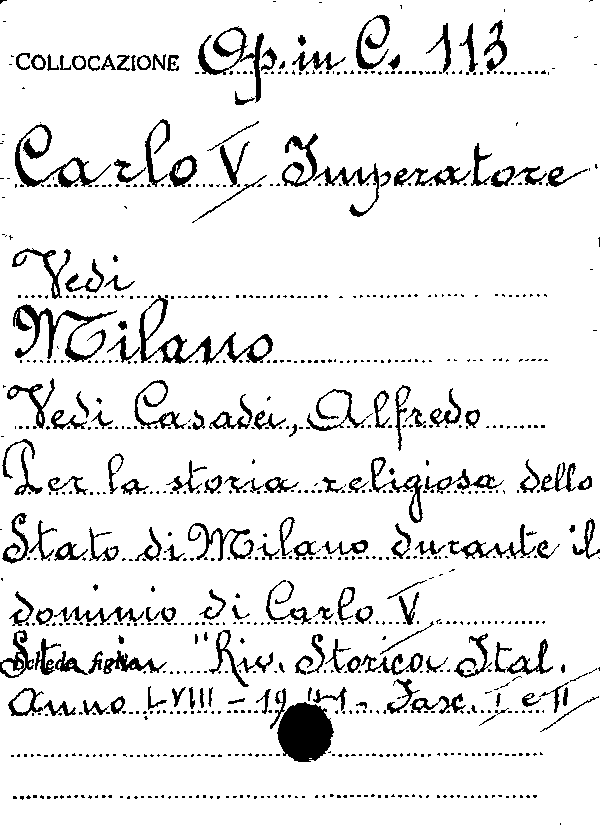 COLLOCAZIONE Op. in C. 113
Carlo V Imperatore
Vedi
Milano
Vedi Casadei, Alfredo
Per la storia religiosa dello
Stato di Milano durante il
dominio di Carlo V
Scheda figlia
Sta in "Riv. Storica Ital.
Anno LVIII - 1941 - Fasc. I e II